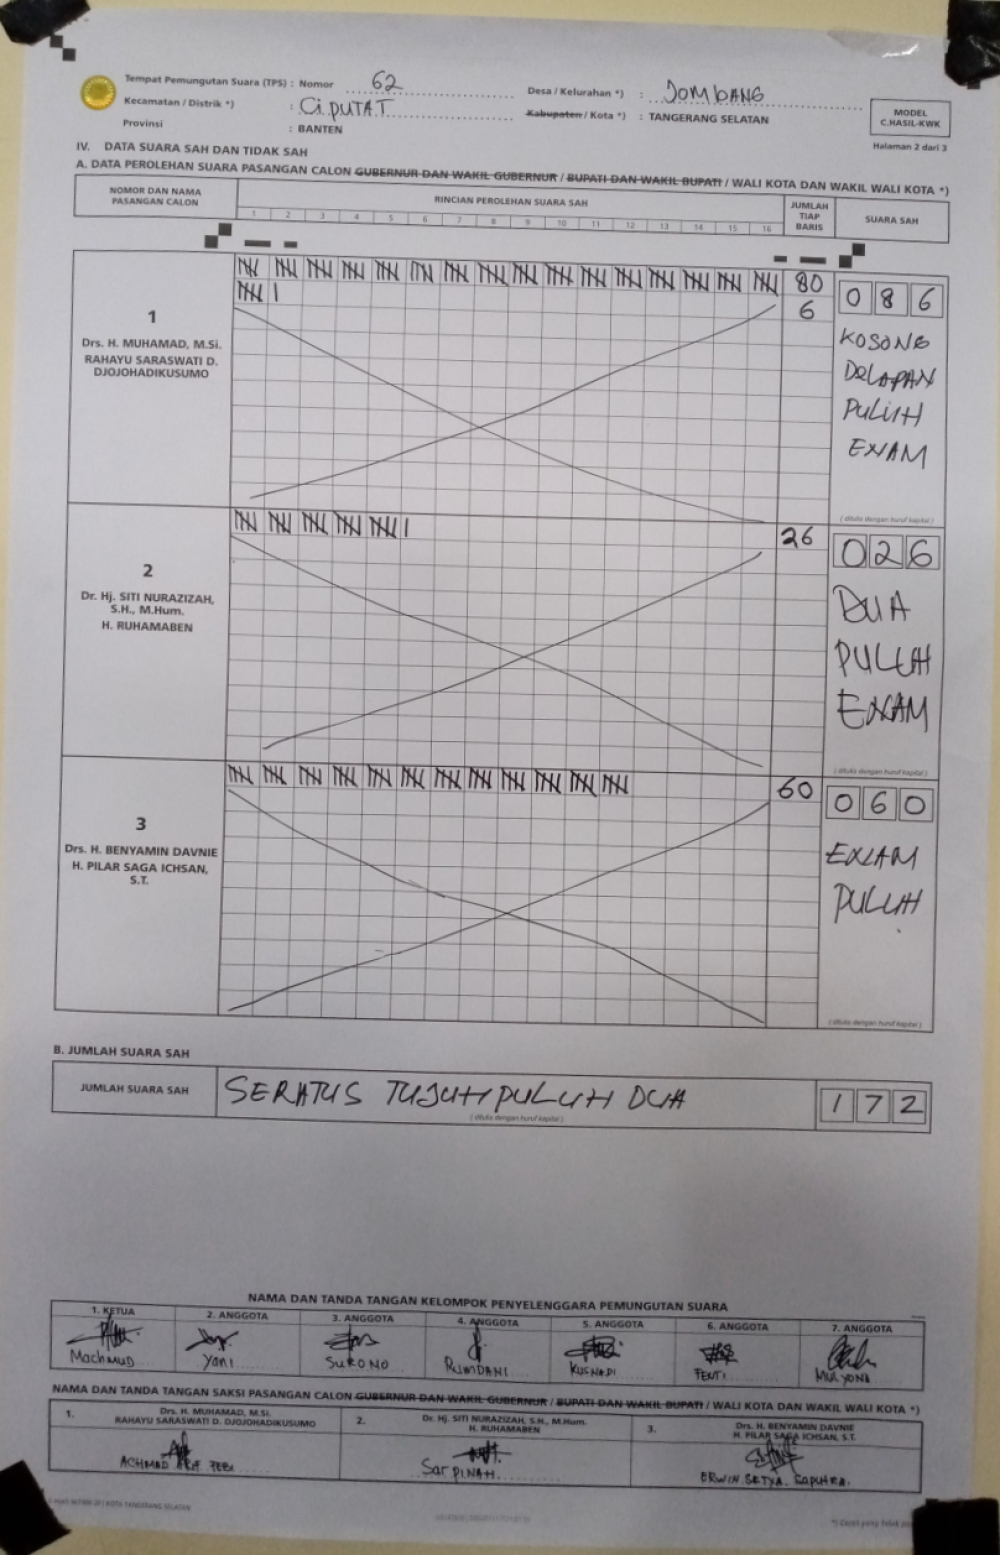 Tempat Pemungutan Suara (TPS) : Nomor 62 Desa / Kelurahan *) : JOMBANG
Kecamatan / Distrik *) : CiPUTAT Kabupaten / Kota *) : TANGERANG SELATAN
Provinsi : BANTEN
MODEL
C.HASIL-KWK
Halaman 2 dari 3
IV. DATA SUARA SAH DAN TIDAK SAH
A. DATA PEROLEHAN SUARA PASANGAN CALON GUBERNUR DAN WAKIL GUBERNUR / BUPATI DAN WAKIL BUPATI / WALI KOTA DAN WAKIL WALI KOTA *)
NOMOR DAN NAMA PASANGAN CALON
RINCIAN PEROLEHAN SUARA SAH
1 2 3 4 5 6 7 8 9 10 11 12 13 14 15 16
JUMLAH TIAP BARIS
SUARA SAH
1
Drs. H. MUHAMAD, M.Si.
RAHAYU SARASWATI D.
DJOJOHADIKUSUMO
80
6
0 8 6
KOSONG
DELAPAN
PULUH
ENAM
( ditulis dengan huruf kapital )
2
Dr. Hj. SITI NURAZIZAH,
S.H., M.Hum.
H. RUHAMABEN
26
0 2 6
DUA
PULUH
ENAM
( ditulis dengan huruf kapital )
3
Drs. H. BENYAMIN DAVNIE
H. PILAR SAGA ICHSAN,
S.T.
60
0 6 0
ENAM
PULUH
( ditulis dengan huruf kapital )
B. JUMLAH SUARA SAH
JUMLAH SUARA SAH SERATUS TUJUH PULUH DUA 1 7 2
( ditulis dengan huruf kapital )
NAMA DAN TANDA TANGAN KELOMPOK PENYELENGGARA PEMUNGUTAN SUARA
1. KETUA 2. ANGGOTA 3. ANGGOTA 4. ANGGOTA 5. ANGGOTA 6. ANGGOTA 7. ANGGOTA
Machmud Yani SUKONO RUMDANI KUSNADI FENTI MULYONO
NAMA DAN TANDA TANGAN SAKSI PASANGAN CALON GUBERNUR DAN WAKIL GUBERNUR / BUPATI DAN WAKIL BUPATI / WALI KOTA DAN WAKIL WALI KOTA *)
1. Drs. H. MUHAMAD, M.Si.
RAHAYU SARASWATI D. DJOJOHADIKUSUMO
2. Dr. Hj. SITI NURAZIZAH, S.H., M.Hum.
H. RUHAMABEN
3. Drs. H. BENYAMIN DAVNIE
H. PILAR SAGA ICHSAN, S.T.
ACHMAD ARIF FEBI
SarPINAH
ERWIN SETYA SAPUTRA
KOTA TANGERANG SELATAN
*) Coret yang tidak